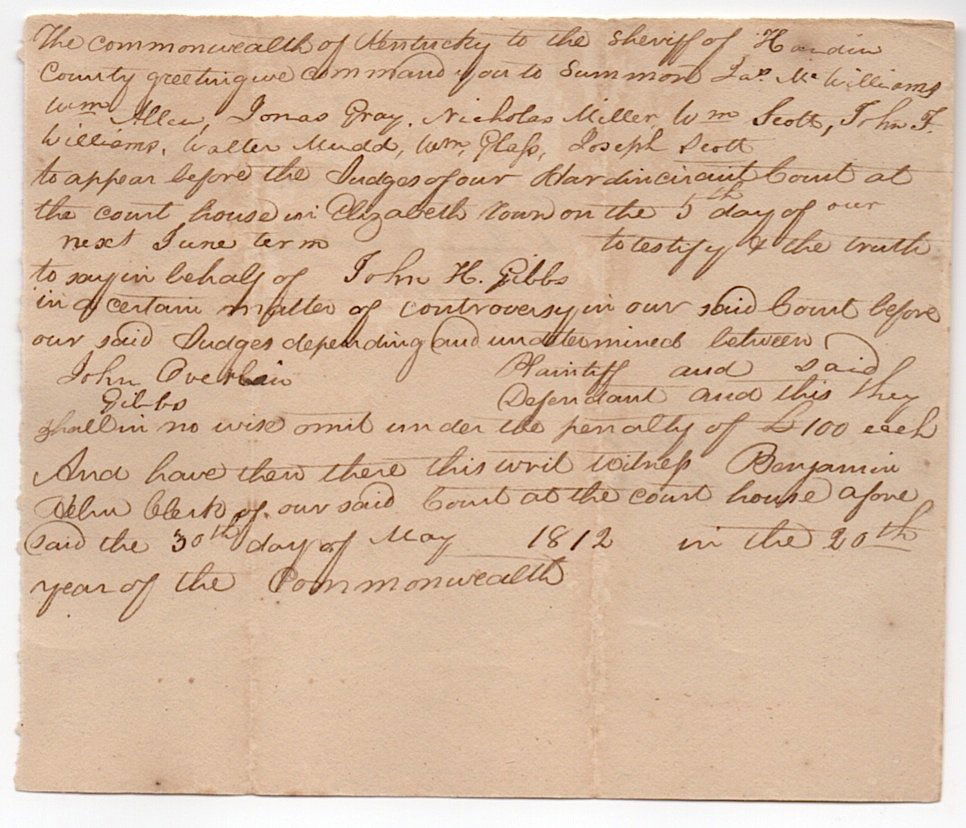 The commonwealth of Kentucky to the Sheriff of Hardin
County greeting we command you to Summon Jas. Mc Williams
Wm Allen, Jonas Gray, Nicholas Miller, Wm Scott, John F.
Williams, Walter Mudd, Wm. Glass, Joseph Scott
to appear before the Judges of our Hardin circuit Court at
the court house in Elizabeth Town on the 5th day of our
next June term to testify & the truth
to say in behalf of John H. Gibbs
in a certain matter of controversy in our said Court before
our said Judges depending and undetermined between
John Plaintiff and said
Gibbs Defendant and this they
shall in no wise omit under the penalty of £100 each
And have then there this writ Witness Benjamin
Helm Clerk of our said Court at the court house afore
said the 30th day of May 1812 in the 20th
year of the Commonwealth